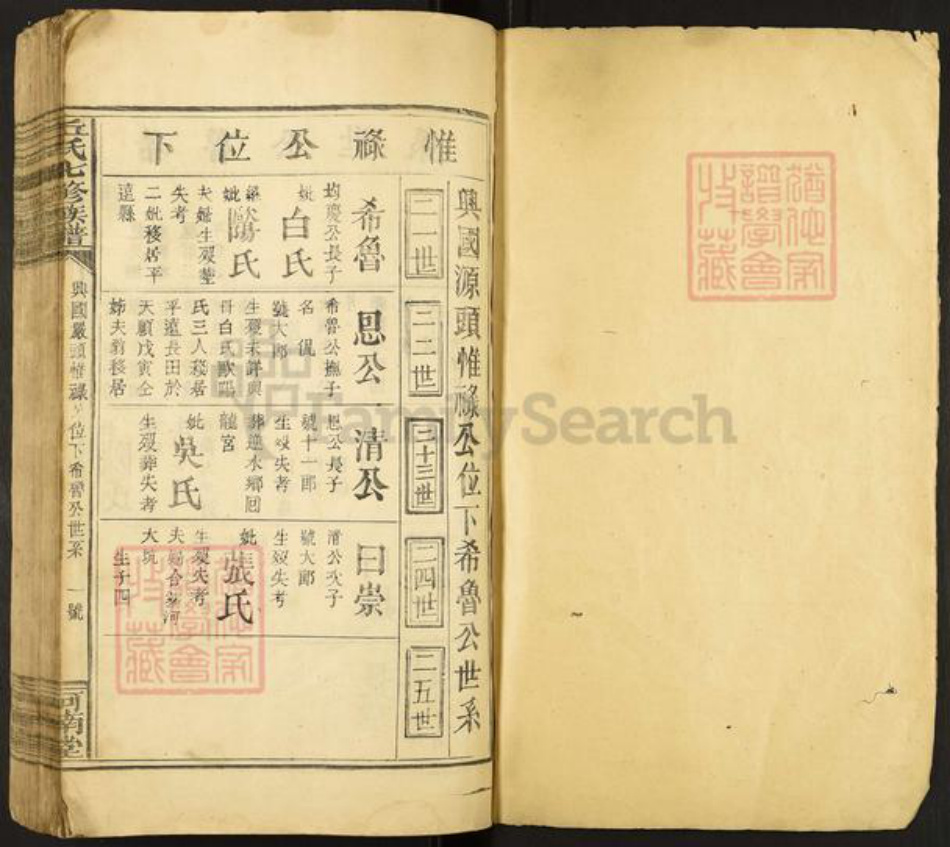 惟祿公位下
興國源頭惟祿公位下希魯公世系
二一世
二二世
二十三世
二四世
二五世
希魯
均慶公長子
妣白氏
繼妣歐陽氏
夫妣生歿塟
失考
二妣移居平
遠縣
思公
希魯公撫子
名侃
號大郎
生歿未詳與
母白氏歐陽
氏三人移居
平遠長田於
天順戊寅仝
姊夫翁移居
清公
思公長子
號十一郎
生歿失考
葬逆水鄉囘
龍宮
妣吳氏
生歿葬失考
曰崇
清公次子
號大郎
生歿失考
妣張氏
生歿失考
夫婦合塟河
大坑
生子四
丘氏七修族譜
興國嚴頭惟祿公位下希魯公世系
一號
河南堂
猶他家譜學會收藏
猶他家譜學會收藏
FamilySearch